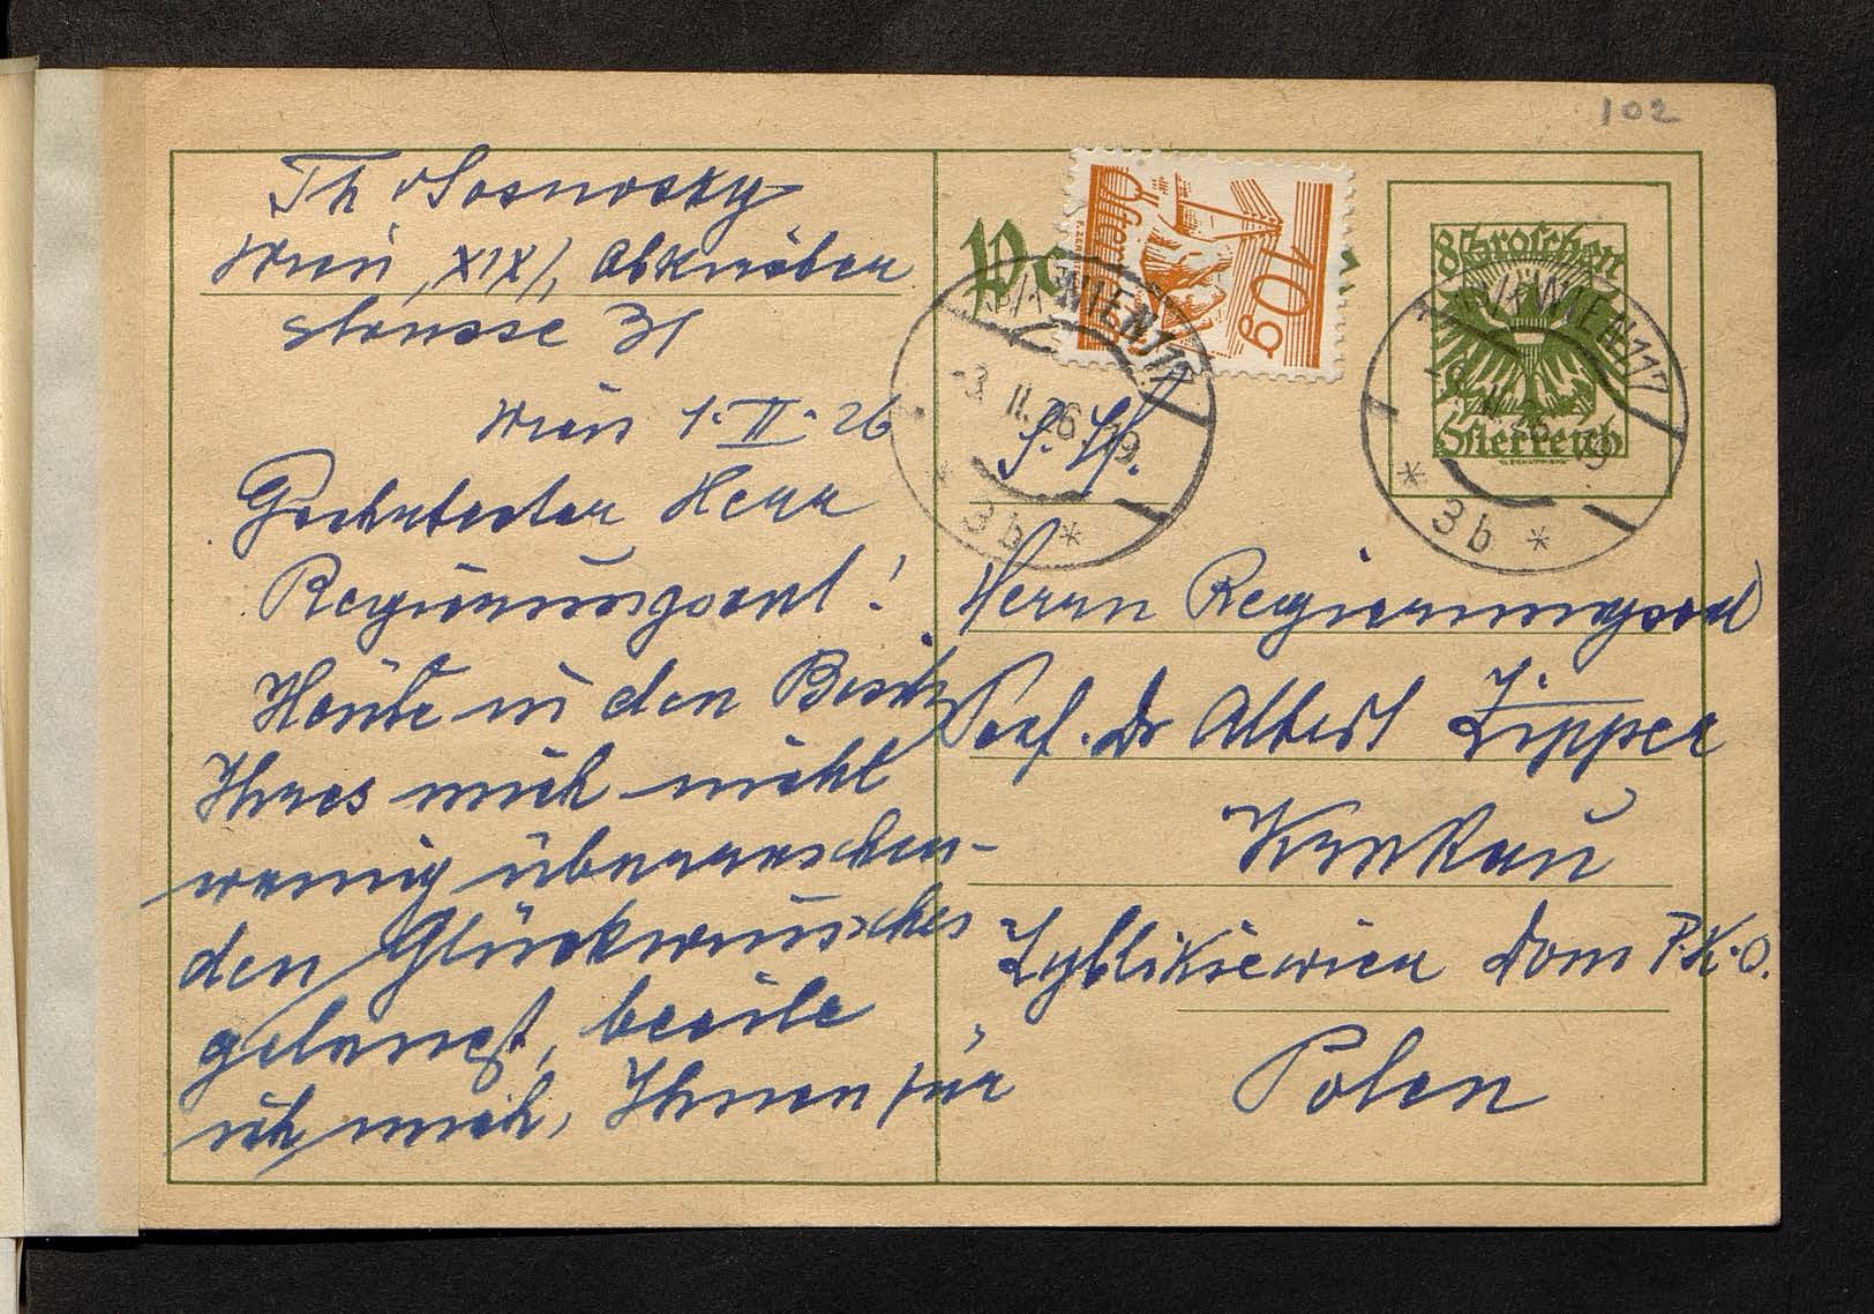 102
Th v Sosnosky
Wien, XIX/1, Obkirchen
strasse 31
Wien 1. II. 26
Geehrtester Herr
Regierungsrat!
Heute in den Besitz
Ihres mich nicht
wenig überraschen-
den Glückwunsches
gelangt, beeile
ich mich, Ihnen für
Po
Österr
10g
WIEN 117
-3.II.26.19
* 3b *
8 Groschen
Österreich
WIEN 117
* 3b *
Herrn Regierungsrat
Prof. Dr Albert Zipper
Krakau
Zyblikiewicza Dom P.K.O.
Polen